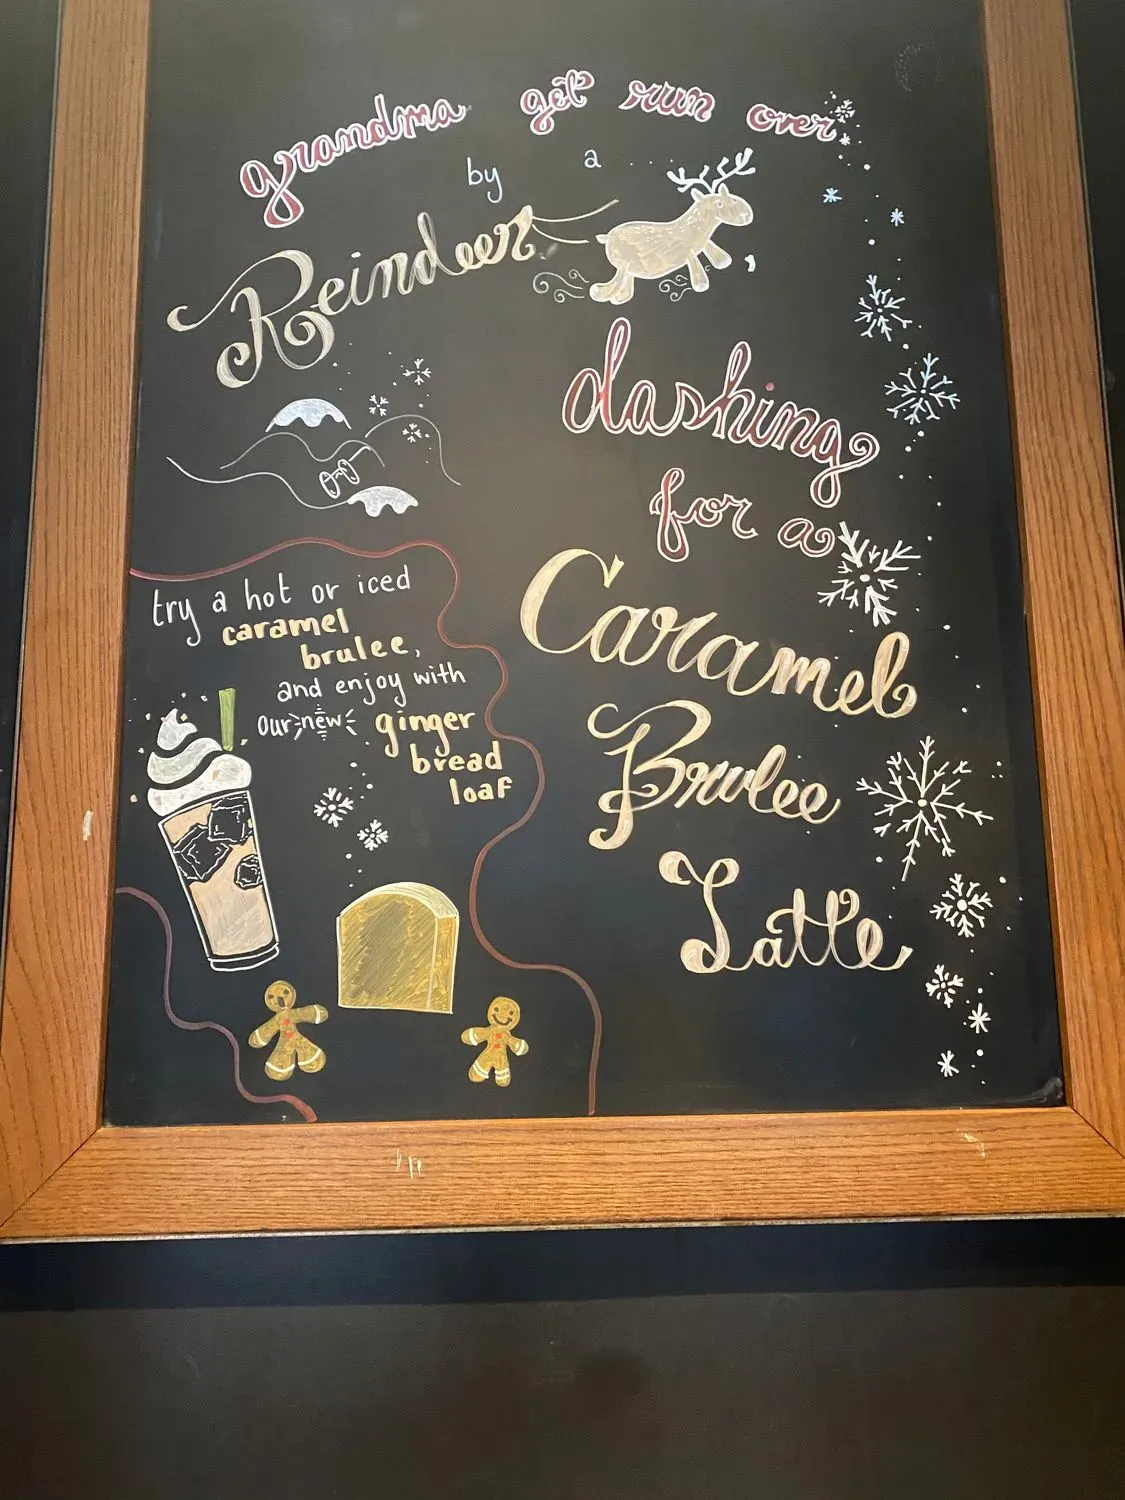 grandma got run over
by a
Reindeer
dashing
for a
Caramel
Brulee
Latte
try a hot or iced
caramel
brulee,
and enjoy with
our new ginger
bread
loaf